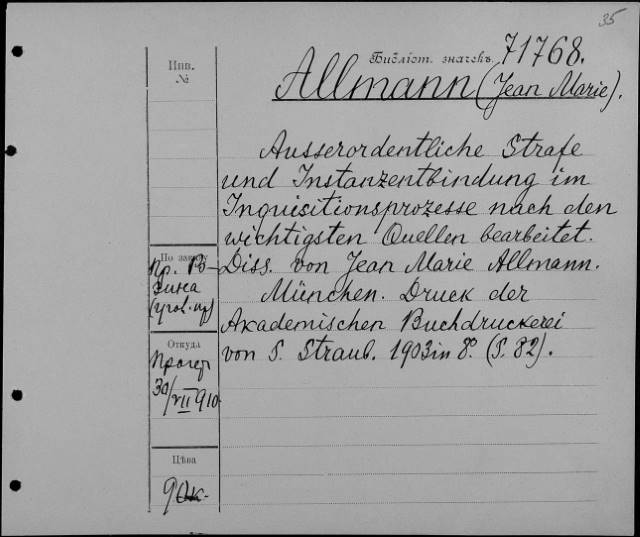 35
Библіот. значекъ 71768.
Allmann (Jean Marie).
Инв.
№
Ausserordentliche Strafe
und Instanzentbindung im
Inquisitionsprozesse nach den
wichtigsten Quellen bearbeitet.
Diss. von Jean Marie Allmann.
München. Druck der
Akademischen Buchdruckerei
von S. Straub. 1903 in 8°. (S. 82).
По заказу
Пр.
Откуда
30/VII 910
Цѣна